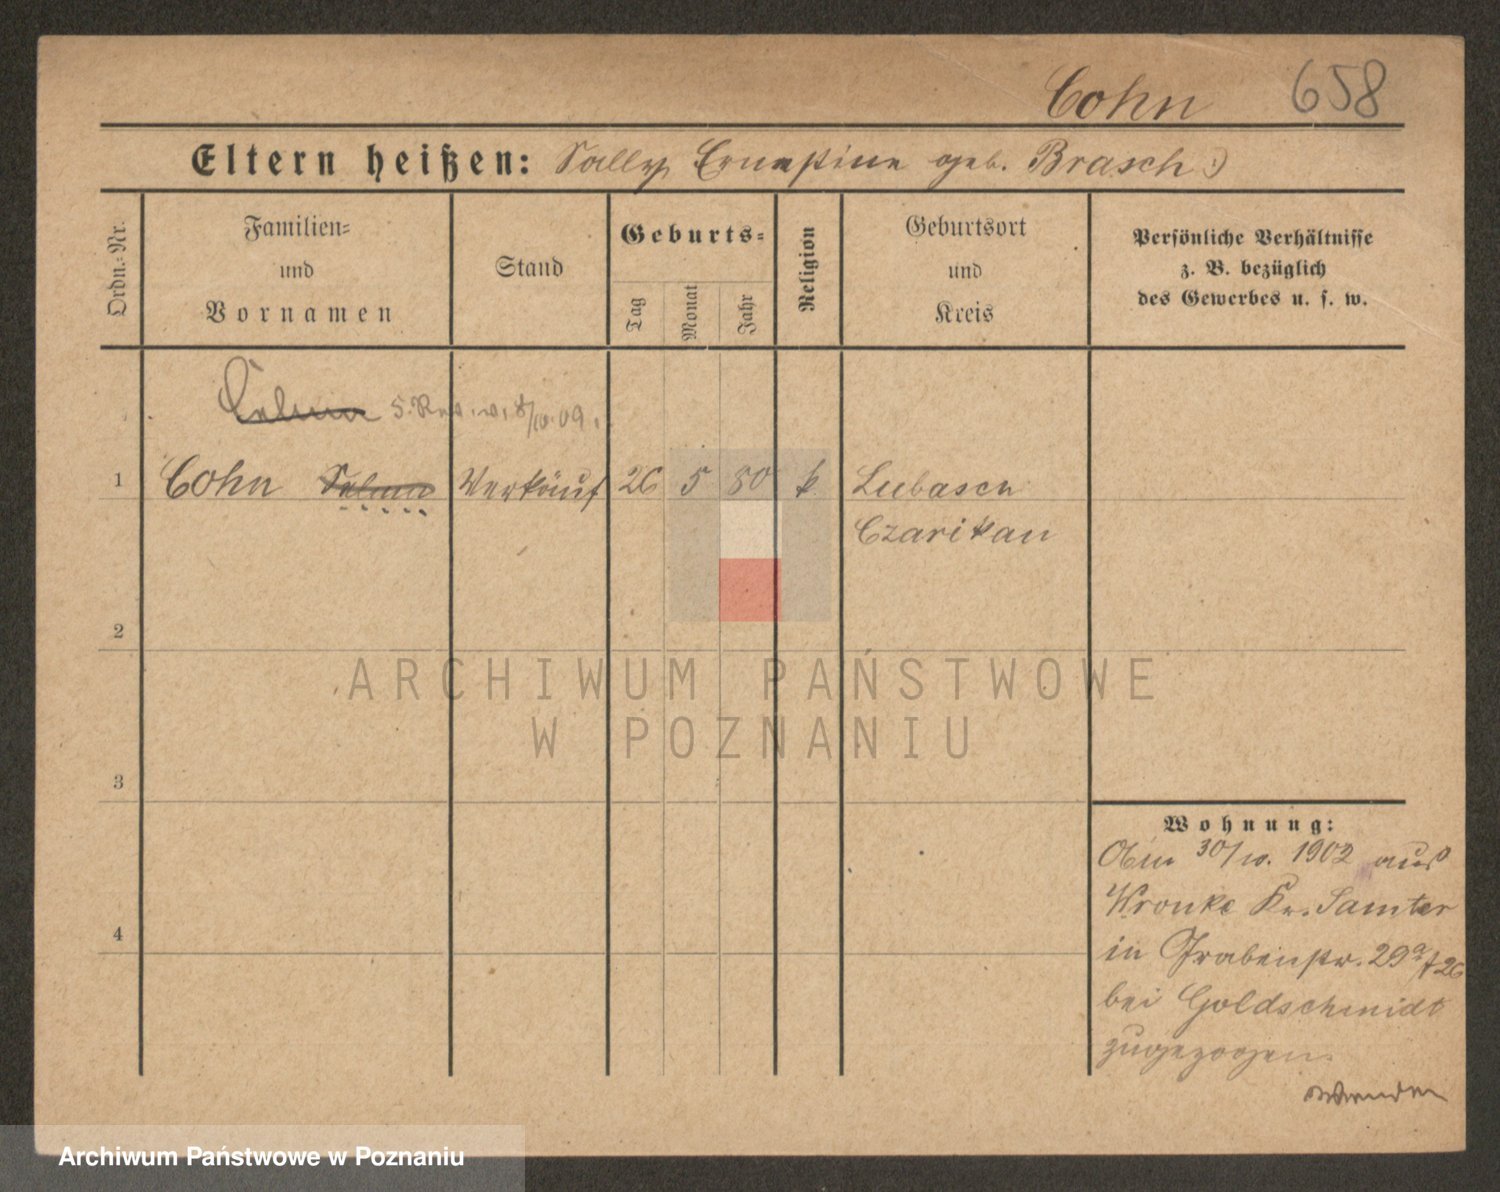 Cohn 658
Eltern heißen: Sally Ernestine geb. Brasch
Ordn.-Nr.
Familien-
und
Vornamen
Stand
Geburts-
Tag
Monat
Jahr
Religion
Geburtsort
und
Kreis
Persönliche Verhältnisse
z. B. bezüglich
des Gewerbes u. s. w.
09.
1 Cohn Selma Verkäuf 26 5 80 Lubasch
Czarikau
2
3
4
Wohnung:
Am 30/10. 1902 aus
Wronke Kr. Samter
in Grabenstr. 29a
bei Goldschmidt
zugezogen.
Wenden
ARCHIWUM PAŃSTWOWE
W POZNANIU
Archiwum Państwowe w Poznaniu